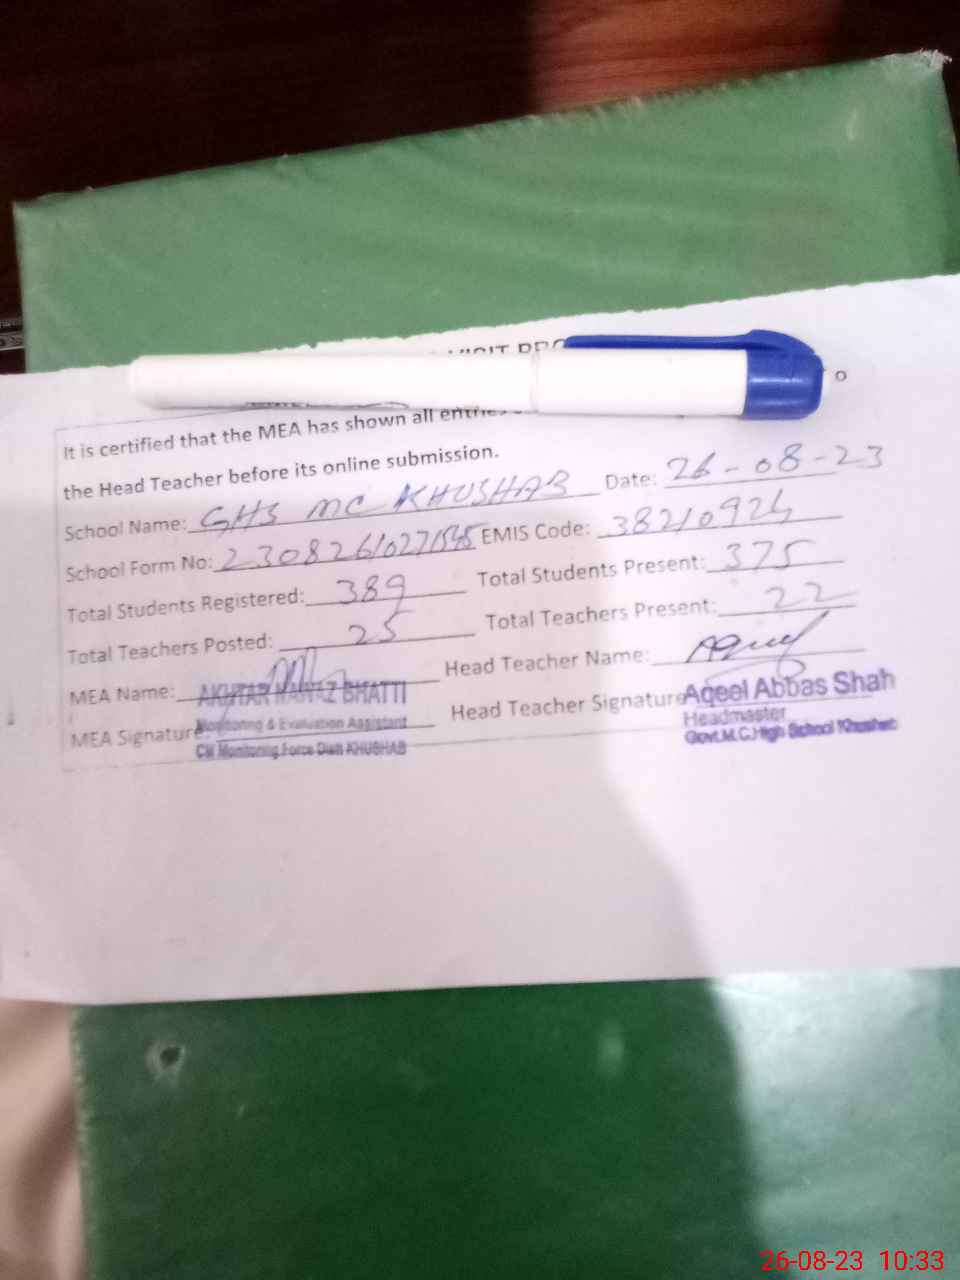 VISIT PRO
It is certified that the MEA has shown all entries
the Head Teacher before its online submission.
School Name: GHS MC KHUSHAB Date: 26-08-23
School Form No: EMIS Code: 38210924
Total Students Registered: 389 Total Students Present: 375
Total Teachers Posted: 25 Total Teachers Present: 22
MEA Name: Head Teacher Name: Aqeel
AKHTAR NAWAZ BHATTI
MEA Signature: Head Teacher Signature Aqeel Abbas Shah
Monitoring & Evaluation Assistant Headmaster
CM Monitoring Force Distt KHUSHAB Govt.M.C.High School Khushab
26-08-23 10:33